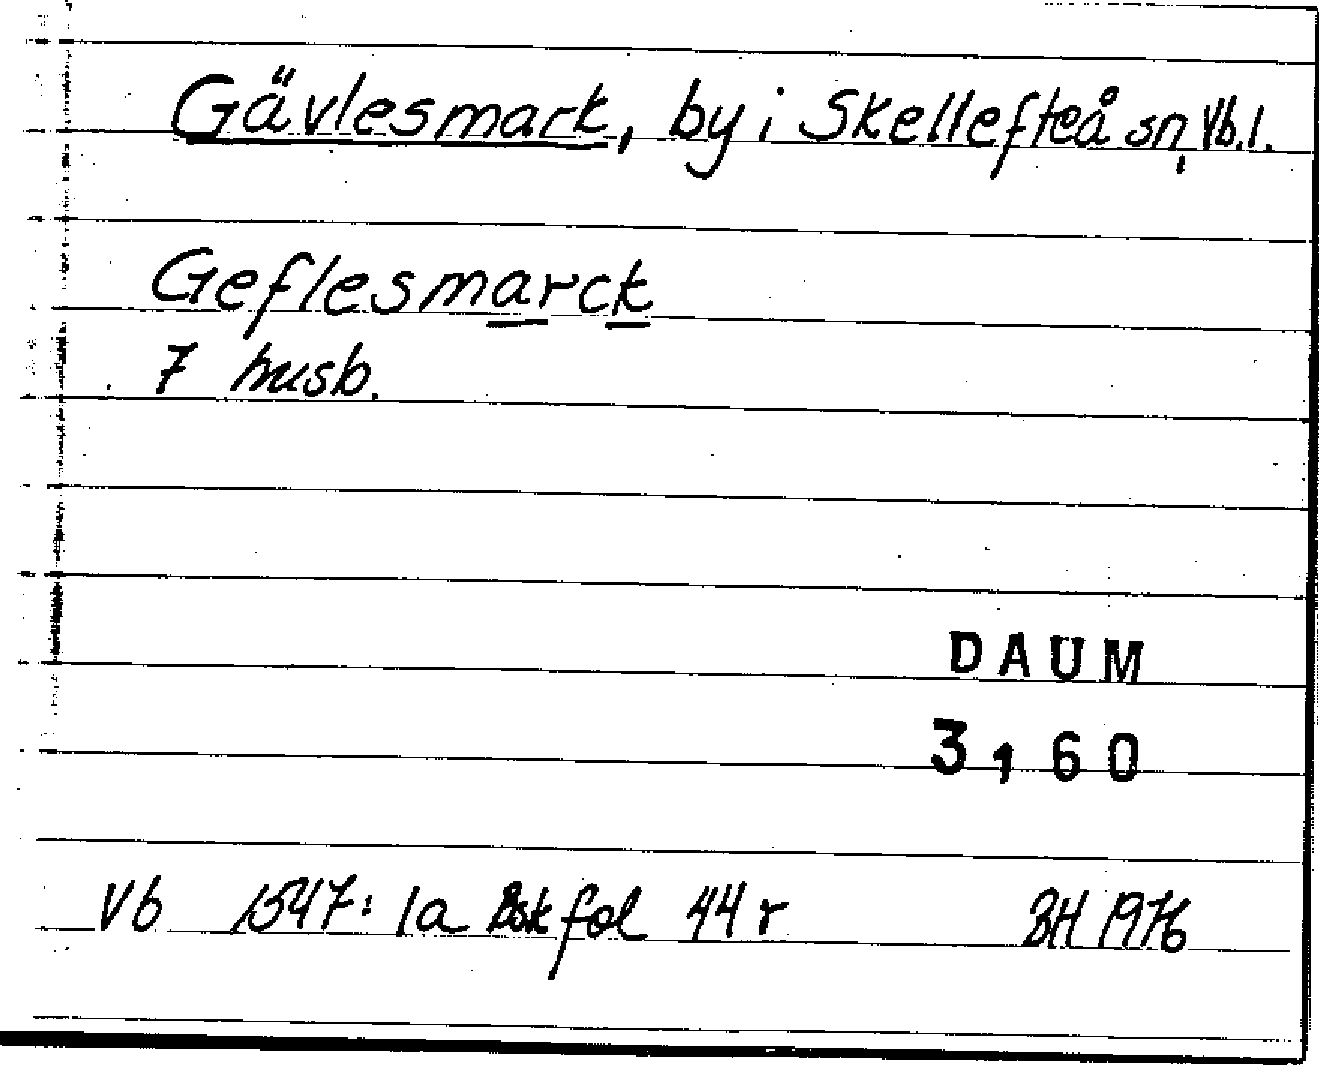 Gävlesmark, by i Skellefteå sn, Vb.l.
Geflesmarck
7 husb.
DAUM
3160
Vb 1547: 1a Bsk fol 44 r BH 1976